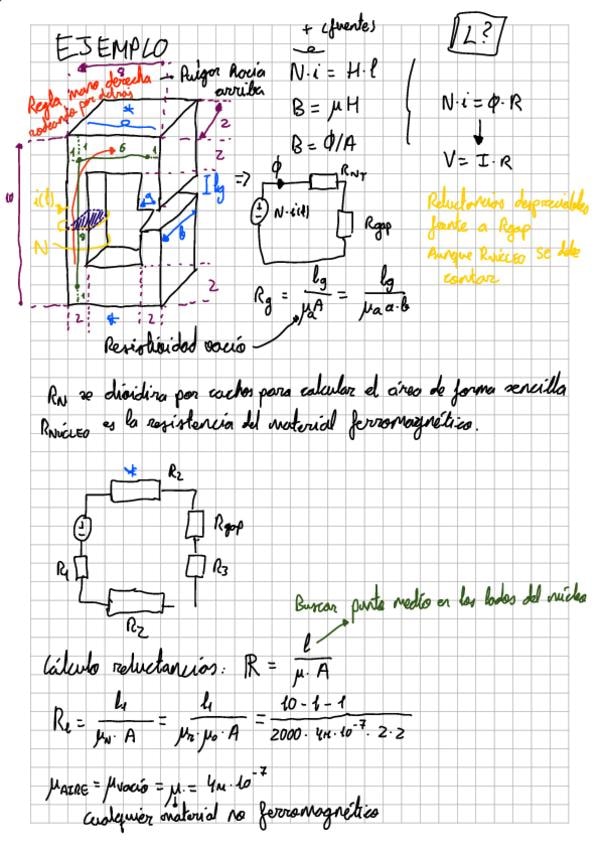 EJEMPLO
+ cfuentes
L?
8
Regla mano derecha
rodeando por detrás
arriba
N·i = H·l
B = μH
B = Φ/A
N·i = Φ·R
V = I·R
2
2
6
1
1
g
lg
i(t)
N
8
b
2
2
2
Φ
N·i(t)
Rgap
Reluctancias despreciables
frente a Rgap
Aunque RNÚCLEO se debe
contar
Rg = lg / μaA = lg / μa a·b
Resistividad vacío
RN se dividira por cachos para calcular el área de forma sencilla
RNÚCLEO es la resistencia del material ferromagnético.
* R2
Rgap
R1
R3
R2
Buscar punto medio en los lados del núcleo
Cálculo reluctancias: R = l / μ·A
R1 = l1 / μN·A = l1 / μr·μ0·A = 10-1-1 / 2000·4π·10⁻⁷·2·2
μAIRE = μvacío = μ = 4π·10⁻⁷
cualquier material no ferromagnético